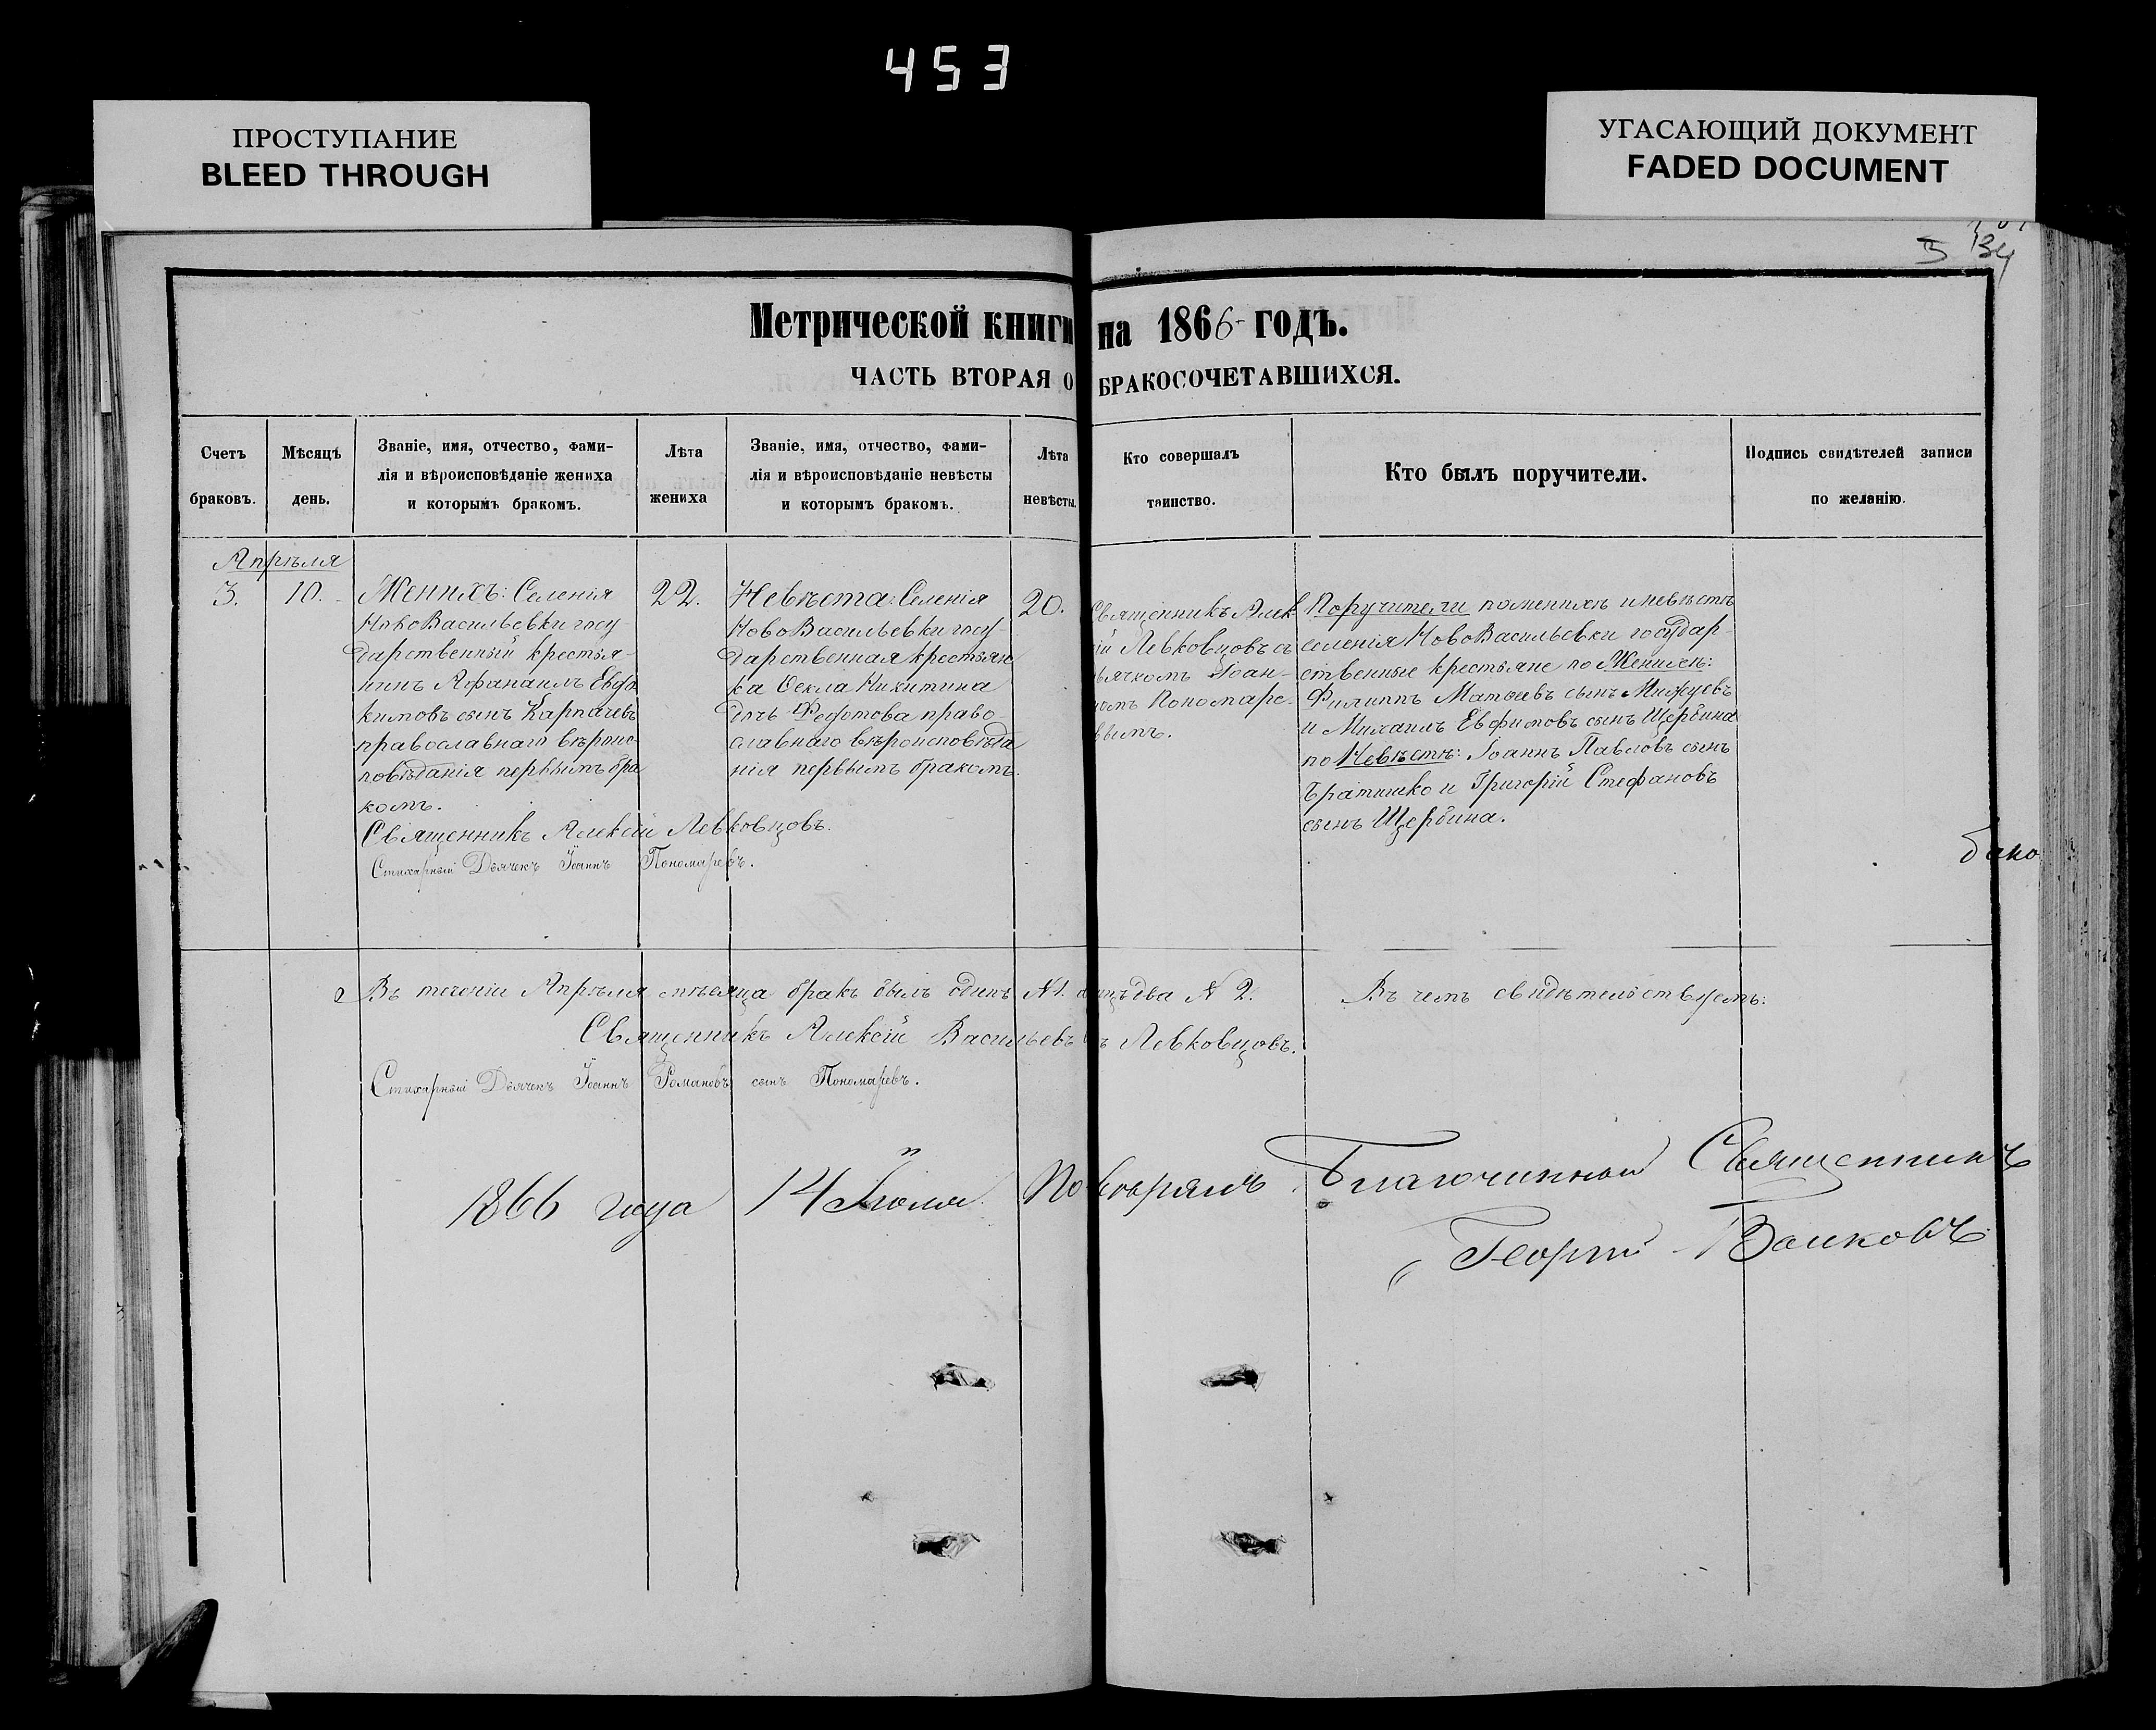 453
ПРОСТУПАНИЕ
BLEED THROUGH
УГАСАЮЩИЙ ДОКУМЕНТ
FADED DOCUMENT
134
Метрической книги на 1866 годъ.
ЧАСТЬ ВТОРАЯ О БРАКОСОЧЕТАВШИХСЯ.
Счетъ
браковъ.
Мѣсяцъ
день.
Званіе, имя, отчество, фами-
лія и вѣроисповѣданіе жениха
и которымъ бракомъ.
Лѣта
жениха
Званіе, имя, отчество, фами-
лія и вѣроисповѣданіе невѣсты
и которымъ бракомъ.
Лѣта
невѣсты.
Кто совершалъ
таинство.
Кто былъ поручители.
Подпись свидѣтелей записи
по желанію.
Апрѣля
3.
10.
Женихъ: Селенія
НовоВасильевки госу-
дарственный крестья-
нинъ Евфи-
мовъ сынъ Карпачевъ
православнаго вѣроис-
повѣданія первымъ бра
комъ.
22.
Невѣста: Селенія
НовоВасильевки госу-
дарственная крестьян
ка Ѳекла Никитина
дочь право
славнаго вѣроисповѣда
нія первымъ бракомъ.
20.
Священникъ Алек
ій Левковцовъ съ
ьячкомъ Іоан-
номъ Пономаре-
вымъ.
Поручители по женихѣ и невѣстѣ
селенія НовоВасильевки государ-
ственные крестьяне по Женихѣ:
Филиппъ Матѳеевъ сынъ
и Михаилъ Евфимовъ сынъ Щербина
по Невѣстѣ: Іоаннъ Павловъ сынъ
Братишко и Григорій Стефановъ
сынъ Щербина.
Священникъ Алексій Левковцовъ.
Стихарный Дьячекъ Іоаннъ Пономаревъ.
Въ теченіи Апрѣля мѣсяца бракъ былъ одинъ №1. лицъ два № 2. Въ чемъ свидѣтельствуемъ:
Священникъ Алексій Васильевъ Левковцовъ.
Стихарный Дьячекъ Іоаннъ Романовъ сынъ Пономаревъ.
1866 года 14 Іюля Повѣрялъ Благочинный Священникъ
Георгій